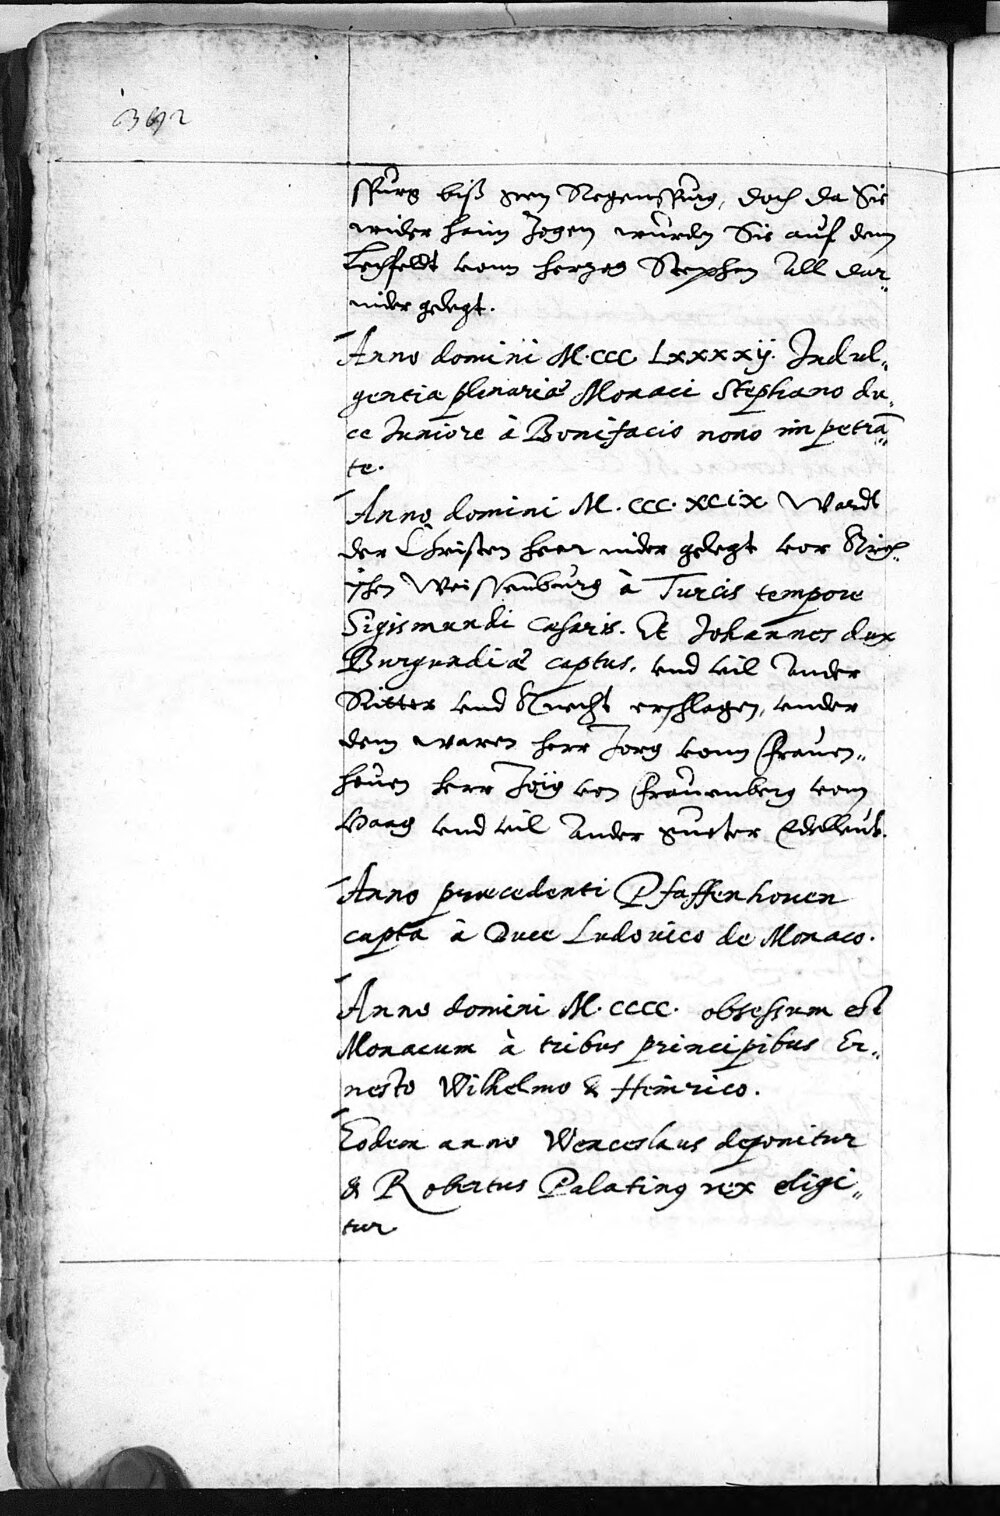 392
spurg biß gen Regenspurg, doch da Sie
wider haim zogen wurden Sie auf dem
Lechfeldt vonn herzog Stephen All dar„
nider gelegt.
Anno domini M.CCC LXXXXij. Indul„
gentia plenariæ Monaci Stephano du„
ce Iuniore à Bonifacio nono impetrā„
te.
Anno domini M. CCC. XCIX Wardt
der Christen heer nider gelegt vor Kriech„
ischen Weissenburg à Turcis tempore
Sigismundi cæsaris. Et Johannes dux
Burgundiæ captus, vnd vil Ander
Ritter vnd Knecht erschlagen, vnder
dem waren herr Jörg vonn Frauen„
houen herr Jörg von Frauenberg vom
Haag vnd vil Ander gueter Edelleut.
Anno præcedenti Pfaffenhouen
capta à Duce Ludouico de Monaco.
Anno domini M.CCCC. obsessum est
Monacum à tribus principibus Er„
nesto Wilhelmo & Heinrico.
Eodem anno Wenceslaus deponitur
& Robertus Palatinꝰ rex eligi„
tur